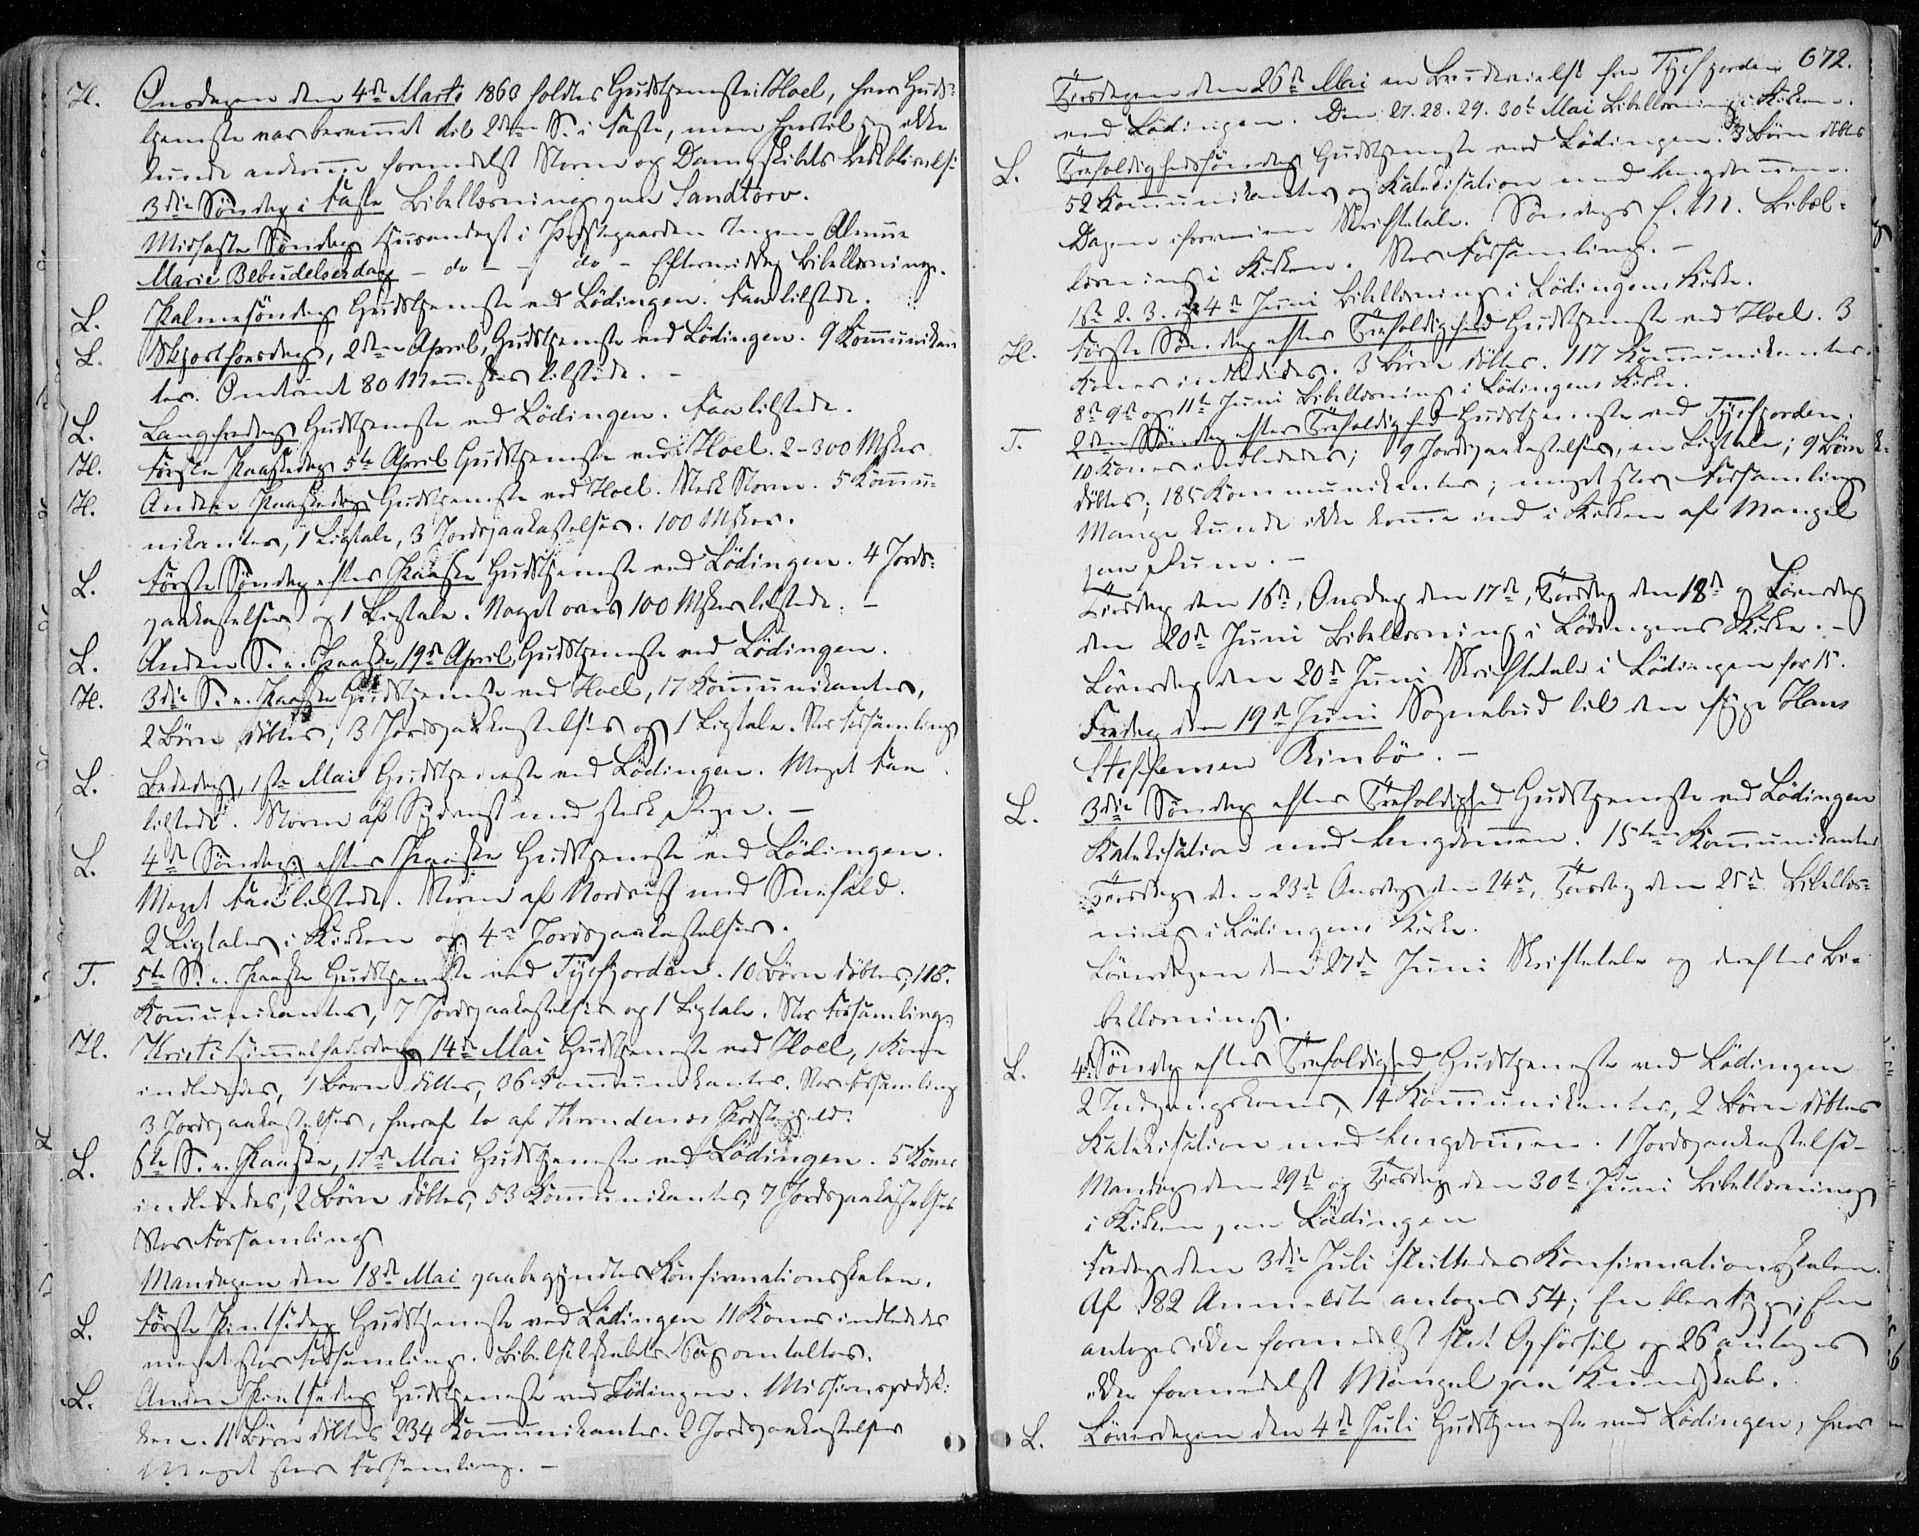 H. Onsdagen den 4de Marts 1863 holdtes Gudstjeneste i Hoel, hvor Guds-
tjeneste var berammet til 2den S. i Faste, men hvortil jeg ikke
kunde ankomme formedelst Storm og Dampskibets Udeblivelse
3die Søndag i Faste Bibellæsning paa Sandtorv.
Midfaste Søndag Huusandagt i Præstegaarden Ingen Almue
Mariæ Bebudelsesdag – do – – do – Eftermiddag Bibellæsning.
L. Palmesøndag Gudstjeneste ved Lödingen. Faa tilstede.
L. Skjærthorsdag, 2den April, Gudstjeneste ved Lödingen. 9 Kommunikan
ter. Omtrent 80 Mennesker tilstede. –
L. Langfredag Gudstjeneste ved Lödingen. Faa tilstede.
H. Förste Paaskedag 5te April Gudstjeneste ved Hoel. 2-300 Msker
H. Anden Paaskedag Gudstjeneste ved Hoel. Sterk Storm. 5 Kommu-
nikanter, 1 Ligtale, 3 Jordspaakastelser. 100 Msker.
L. Förste Söndag efter Paaske Gudstjeneste ved Lödingen. 4 Jords-
paakastelser og 1 Ligtale. Noget over 100 Msker tilstede. –
L. Anden S. e. Paaske, 19de April, Gudstjeneste ved Lödingen.
H. 3die S. e. Paaske Gudstjeneste ved Hoel, 17 Kommunikanter,
2 Börn döbtes, 3 Jordspaakastelser og 1 Ligtale. Stor Forsamling
L. Bededag, 1ste Mai Gudstjeneste ved Lödingen. Meget Faa
tilstede. Storm af Sydvest med sterk Regn. –
L. 4de Söndag efter Paaske Gudstjeneste ved Lödingen.
Meget Faa tilstede. Storm af Nordvest med Sneefald.
2 Ligtaler i Kirken og 4re Jordspaakastelser.
T. 5te S. e. Paaske Gudstjeneste ved Tysfjorden. 10 Börn döbtes, 118
Kommunikanter, 7 Jordspaakastelser og 1 Ligtale. Stor Forsamling
H. Kristi Himmelfartsdag 14de Mai Gudstjeneste ved Hoel, 1 Kone
indlededes, 1 Barn döbtes, 36 Kommunikanter. Stor Forsamling
3 Jordspaakastelser, hvoraf to af Throndenes Præstegjeld.
L. 6te S. e. Paaske, 17de Mai Gudstjeneste ved Lödingen. 5 Koner
indlededes, 2 Börn döbtes, 53 Kommunikanter, 7 Jordspaakastelser
Stor Forsamling
Mandagen den 18de Mai paabegyndtes Konfirmationsskolen.
L. Förste Pintsedag Gudstjeneste ved Lödingen 11 Koner indlededes
meget stor Forsamling. Bibelselskabets Sag omtaltes.
L. Anden Pintsedag Gudstjeneste ved Lödingen. Missionsprædik-
ken. 11 Börn döbtes 234 Kommunikanter. 2 Jordspaakastelser
Meget stor Forsamling. –
672.
Tirsdagen den 26de Mai en Brudevielse fra Tysfjorden
ved Lödingen. Den 27. 28. 29. 30te Mai Bibellæsning i Kirken.
L. Trefoldighedssöndag Gudstjeneste ved Lödingen. 3 Börn döbtes
52 Kommunikanter og Katekisation med Ungdommen.
Dagen iforveien Skriftetale. Söndags E. M. Bibel-
læsning i Kirken. Stor Forsamling. –
1ste 2. 3. og 4de Juni Bibellæsning i Lödingens Kirke.
H. Förste Söndag efter Trefoldighed Gudstjeneste ved Hoel. 3
Koner indlededes. 3 Börn döbtes. 117 Kommunikanter.
8de 9de og 11te Juni Bibellæsning i Lödingens Kirke.
T. 2den Söndag efter Trefoldighed Gudstjeneste ved Tysfjorden.
10 Koner indlededes; 9 Jordspaakastelser, en Ligtale; 9 Börn
döbtes; 185 Kommunikanter; meget stor Forsamling
Mange kunde ikke komme ind i Kirken af Mangel
paa Rum. –
Tirsdag den 16de, Onsdag den 17de, Torsdag den 18de og Löverdag
den 20de Juni Bibellæsning i Lödingens Kirke. –
Löverdag den 20de Juni Skriftetale i Lödingen for 15.
Fredag den 19de Juni Sognebud til den syge Hans
Steffensen Rinbö. –
L. 3die Söndag efter Trefoldighed Gudstjeneste ved Lödingen
Katekisation med Ungdommen. 15ten Kommunikanter
Tirsdag den 23de Onsdag den 24de, Torsdag den 25de Bibellæs-
ning i Lödingens Kirke.
Löverdagen den 27de Juni Skriftetale og derefter Bi-
bellæsning.
L. 4de Söndag efter Trefoldighed Gudstjeneste ved Lödingen
2 Indgangskoner, 14 Kommunikanter, 2 Börn döbtes
Katekisation med Ungdommen. 1 Jordspaakastelse –
Mandag den 29de og Tirsdag den 30te Juni Bibellæsning
i Kirken paa Lödingen
Fredag den 3die Juli sluttedes Konfirmationsskolen.
Af 82 Anmeldte antoges 54; En blev syg; En
antoges ikke formedelst slet Opförsel og 26 antoges
ikke formedelst Mangel paa Kundskab.
L. Löverdagen den 4de Juli Gudstjeneste ved Lödingen, hvor